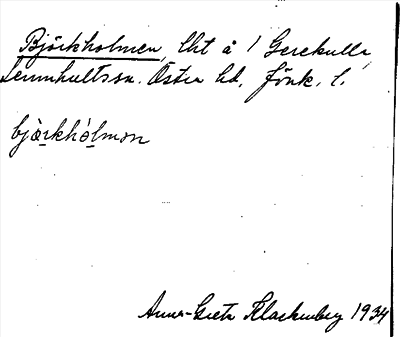 Björkholmen, lht å 1 Gerekulla,
Lemnhults sn. Östra hd, Jönk. l.
bjòrkhólmon
Anna-Greta Klackenberg 1934